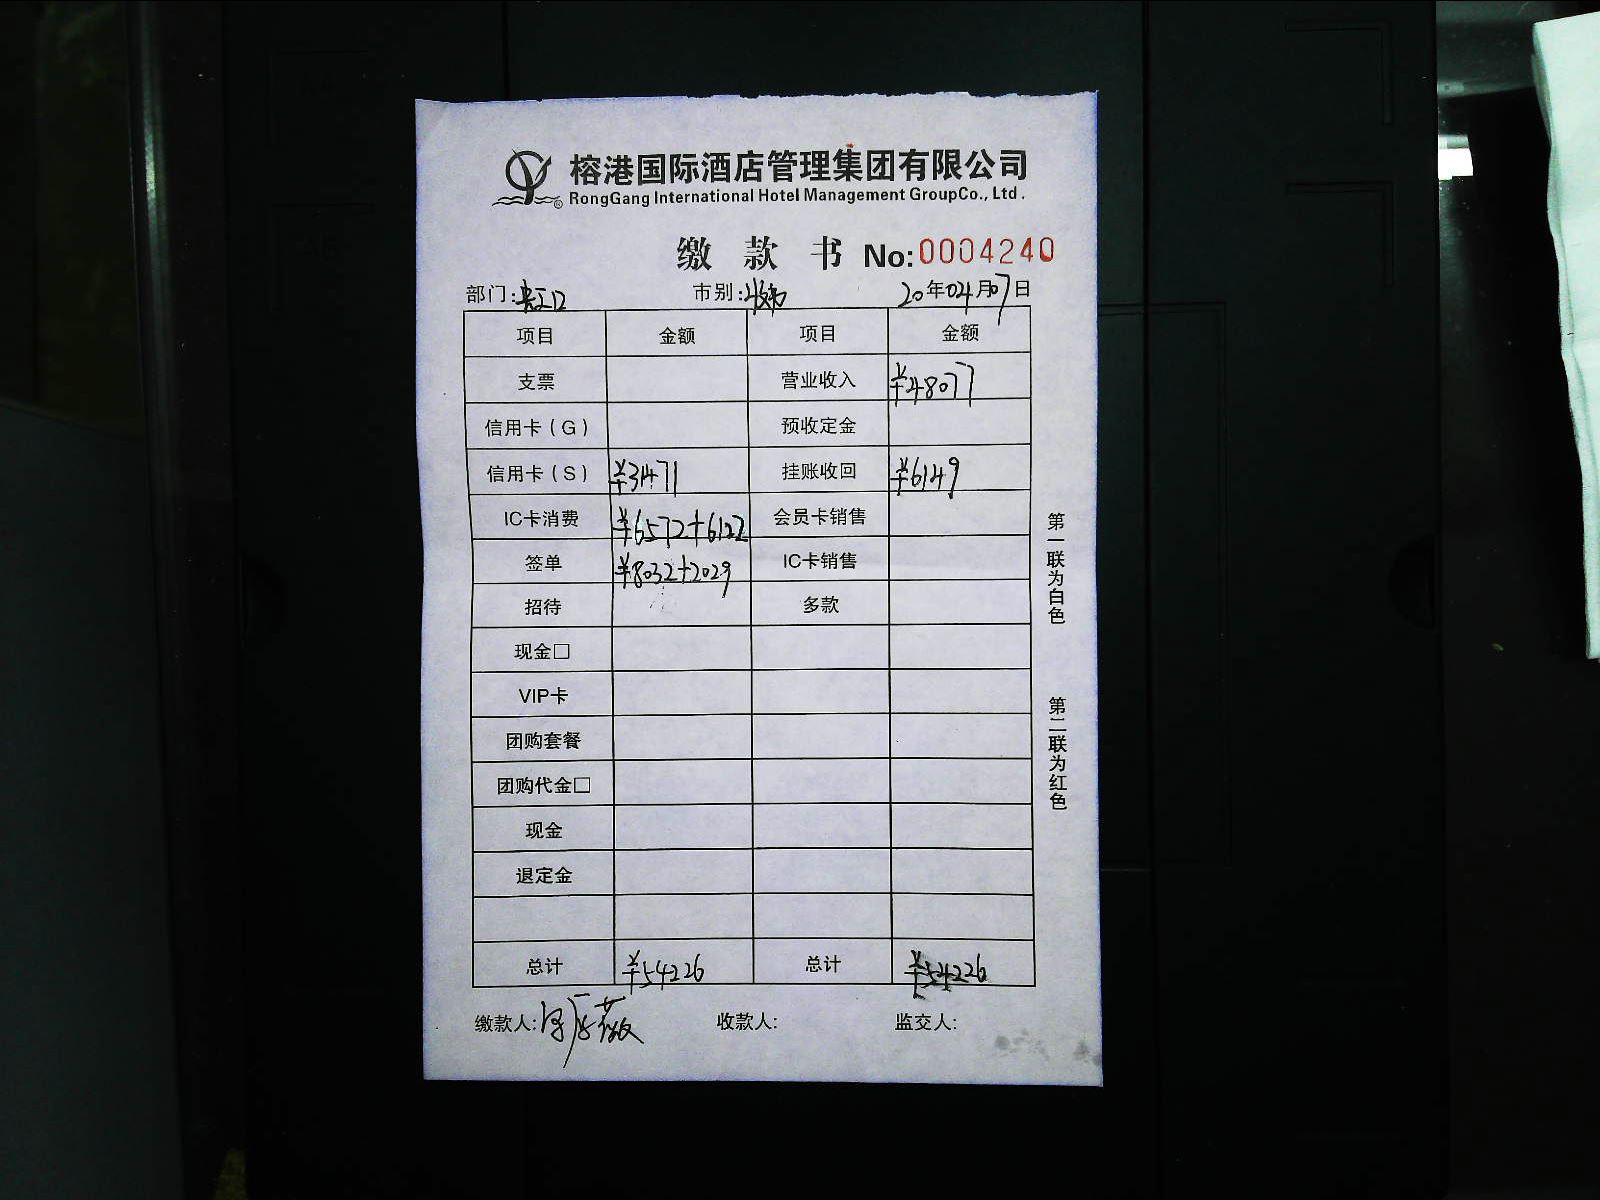 榕港国际酒店管理集团有限公司
RongGang International Hotel Management GroupCo., Ltd .
缴 款 书 No:0004240
部门: 市别: 20年04月07日
项目 金额 项目 金额
支票 营业收入 ¥48077
信用卡（G） 预收定金
信用卡（S） ¥31471 挂账收回 ¥6149
IC卡消费 ¥6572+6122 会员卡销售
签单 ¥8032+2029 IC卡销售
招待 多款
现金□
VIP卡
团购套餐
团购代金□
现金
退定金
总计 ¥54226 总计 ¥54226
缴款人: 收款人: 监交人:
第一联为白色
第二联为红色